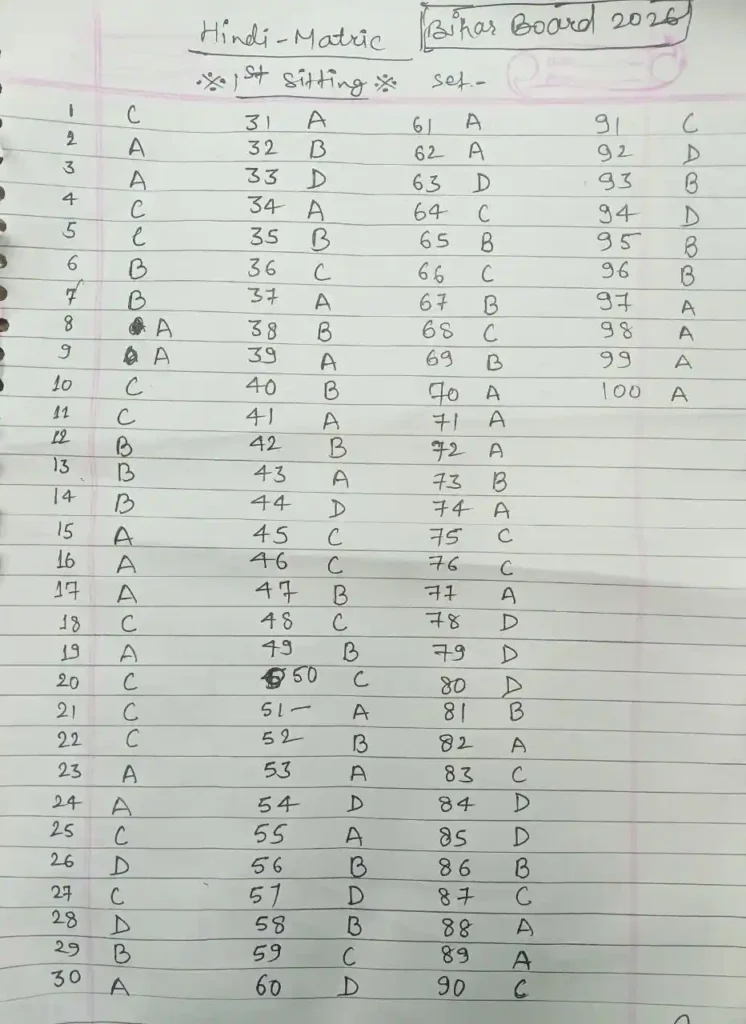 Hindi-Matric Bihar Board 2026
※ 1st Sitting ※ set.-
1 C 31 A 61 A 91 C
2 A 32 B 62 A 92 D
3 A 33 D 63 D 93 B
4 C 34 A 64 C 94 D
5 C 35 B 65 B 95 B
6 B 36 C 66 C 96 B
7 B 37 A 67 B 97 A
8 A 38 B 68 C 98 A
9 A 39 A 69 B 99 A
10 C 40 B 70 A 100 A
11 C 41 A 71 A
12 B 42 B 72 A
13 B 43 A 73 B
14 B 44 D 74 A
15 A 45 C 75 C
16 A 46 C 76 C
17 A 47 B 77 A
18 C 48 C 78 D
19 A 49 B 79 D
20 C 50 C 80 D
21 C 51- A 81 B
22 C 52 B 82 A
23 A 53 A 83 C
24 A 54 D 84 D
25 C 55 A 85 D
26 D 56 B 86 B
27 C 57 D 87 C
28 D 58 B 88 A
29 B 59 C 89 A
30 A 60 D 90 C